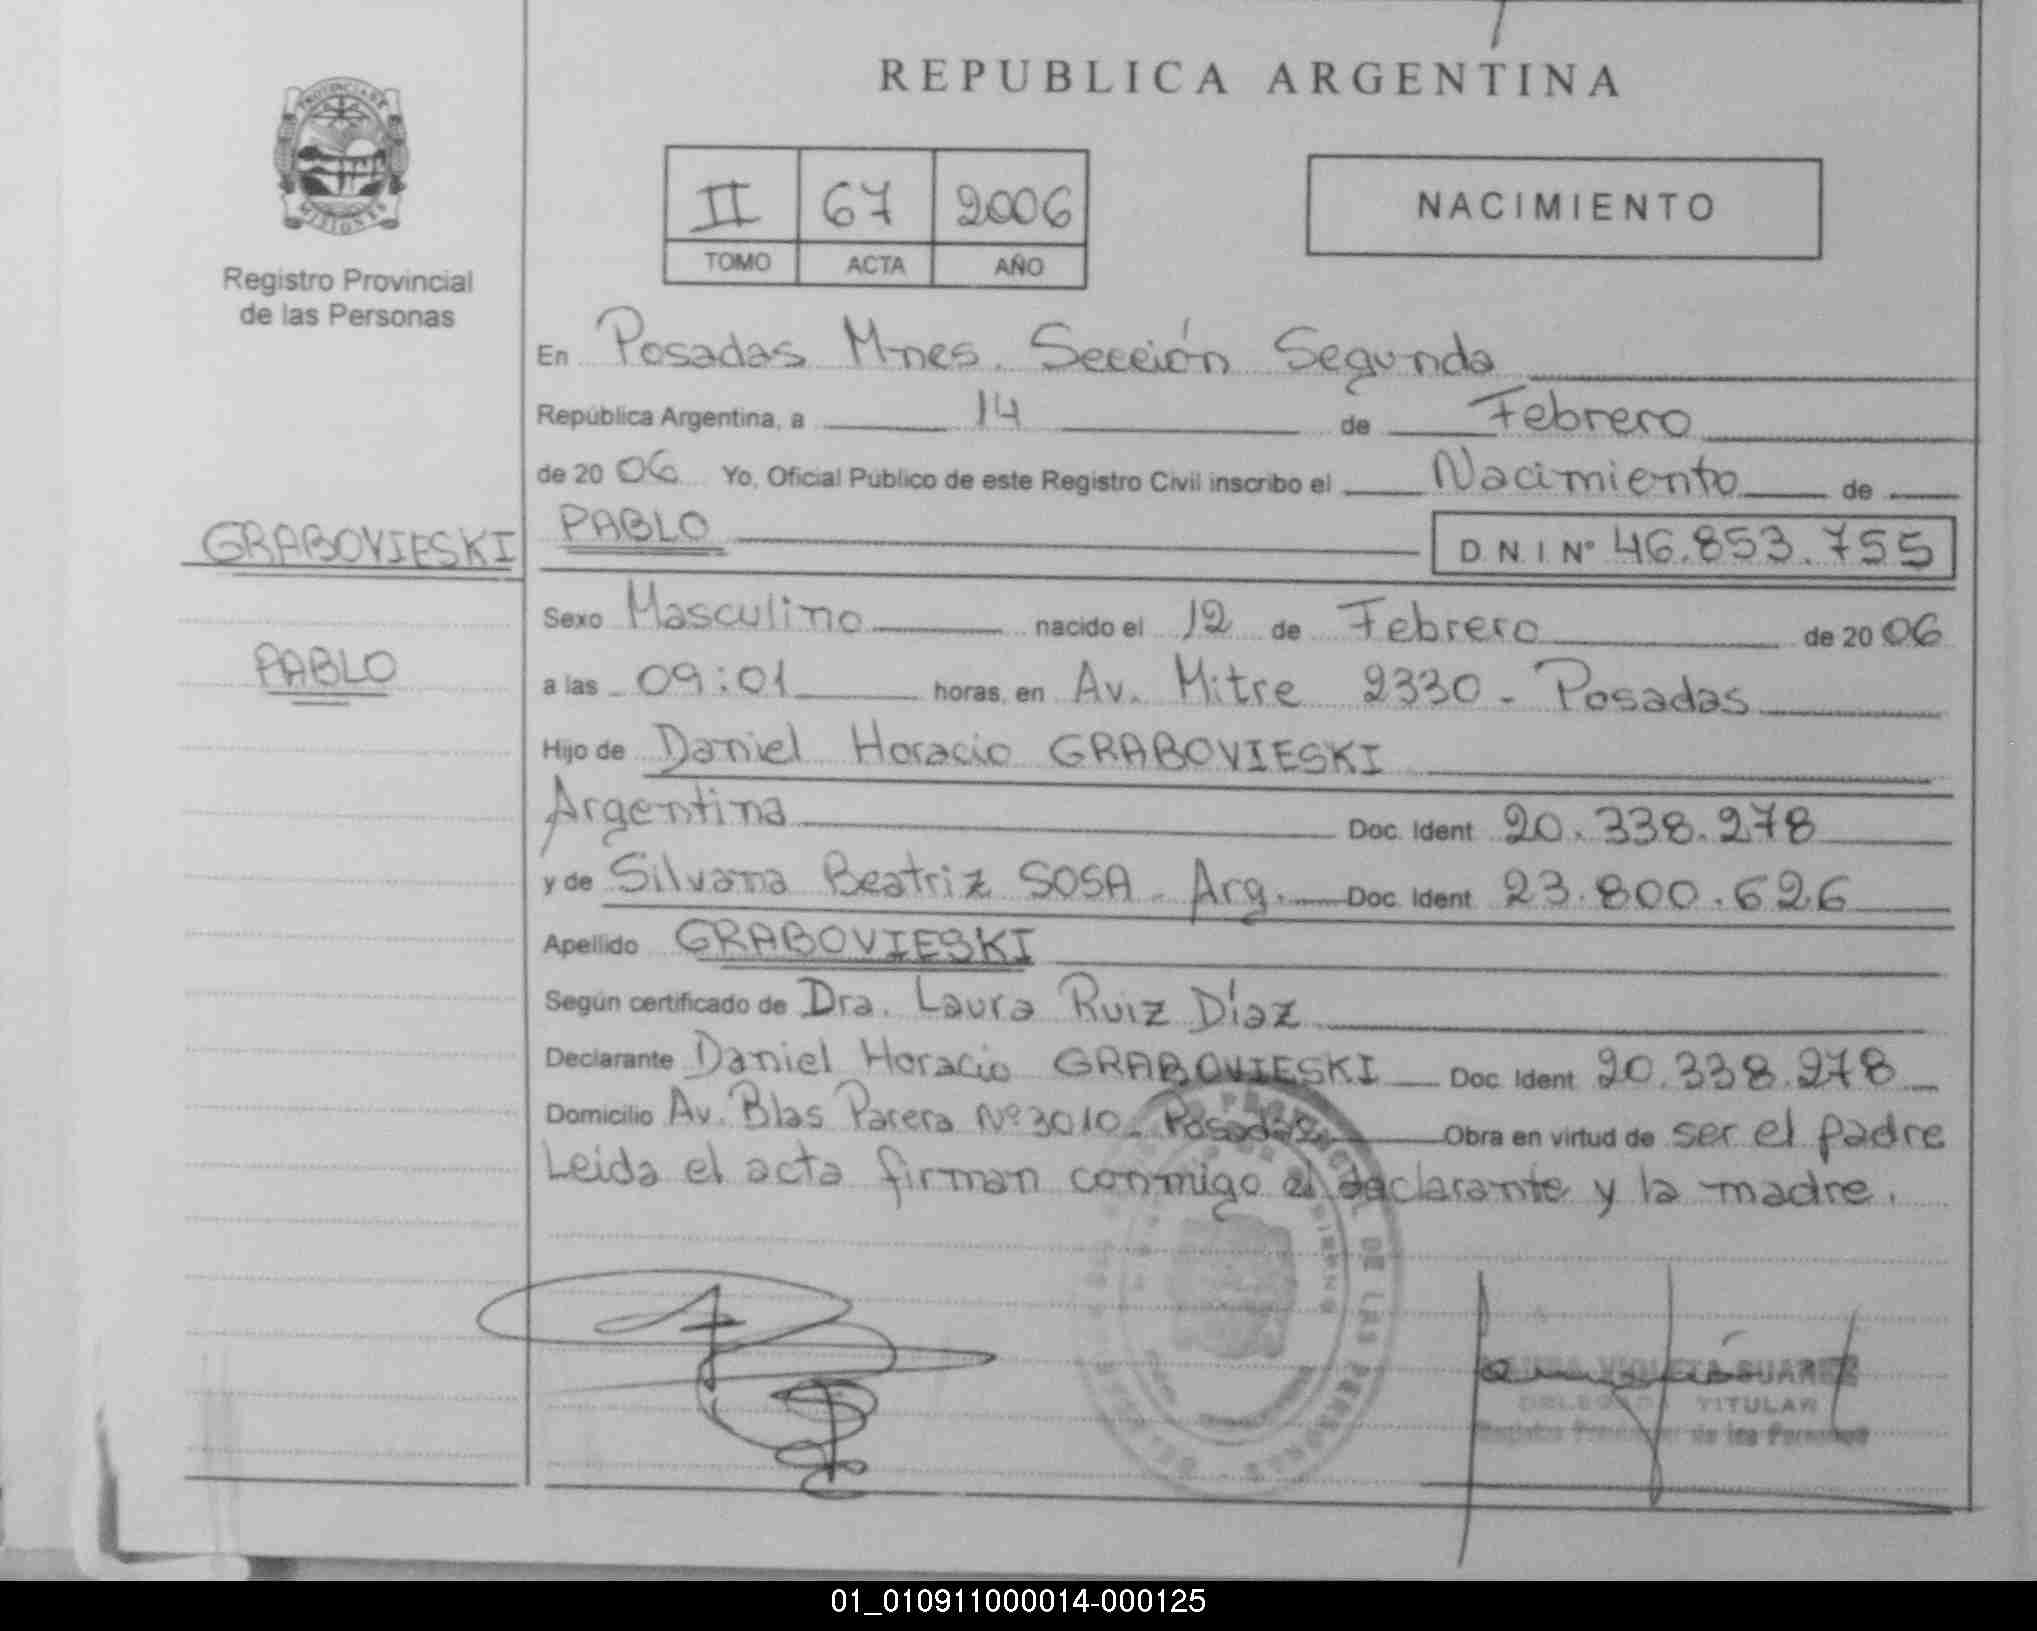 REPUBLICA ARGENTINA
PROVINCIA DE
MISIONES
Registro Provincial
de las Personas
II 67 2006
TOMO ACTA AÑO
NACIMIENTO
En Posadas Mnes. Sección Segunda
República Argentina, a 14 de Febrero
de 20 06 Yo, Oficial Público de este Registro Civil inscribo el Nacimiento de
GRABOVIESKI
PABLO
PABLO
D.N.I Nº 46.853.755
Sexo Masculino nacido el 12 de Febrero de 20 06
a las 09:01 horas, en Av. Mitre 2330 - Posadas
Hijo de Daniel Horacio GRABOVIESKI
Argentina Doc. Ident 20.338.278
y de Silvana Beatriz SOSA - Arg. Doc. Ident 23.800.626
Apellido GRABOVIESKI
Según certificado de Dra. Laura Ruiz Díaz
Declarante Daniel Horacio GRABOVIESKI Doc. Ident 20.338.278
Domicilio Av. Blas Parera Nº 3010 - Posadas Obra en virtud de ser el padre
Leida el acta firman conmigo el declarante y la madre.
PROVINCIAL DE LAS PERSONAS
VIOLETA SUAREZ
DELEGADA TITULAR
Registro Provincial de las Personas
01_010911000014-000125